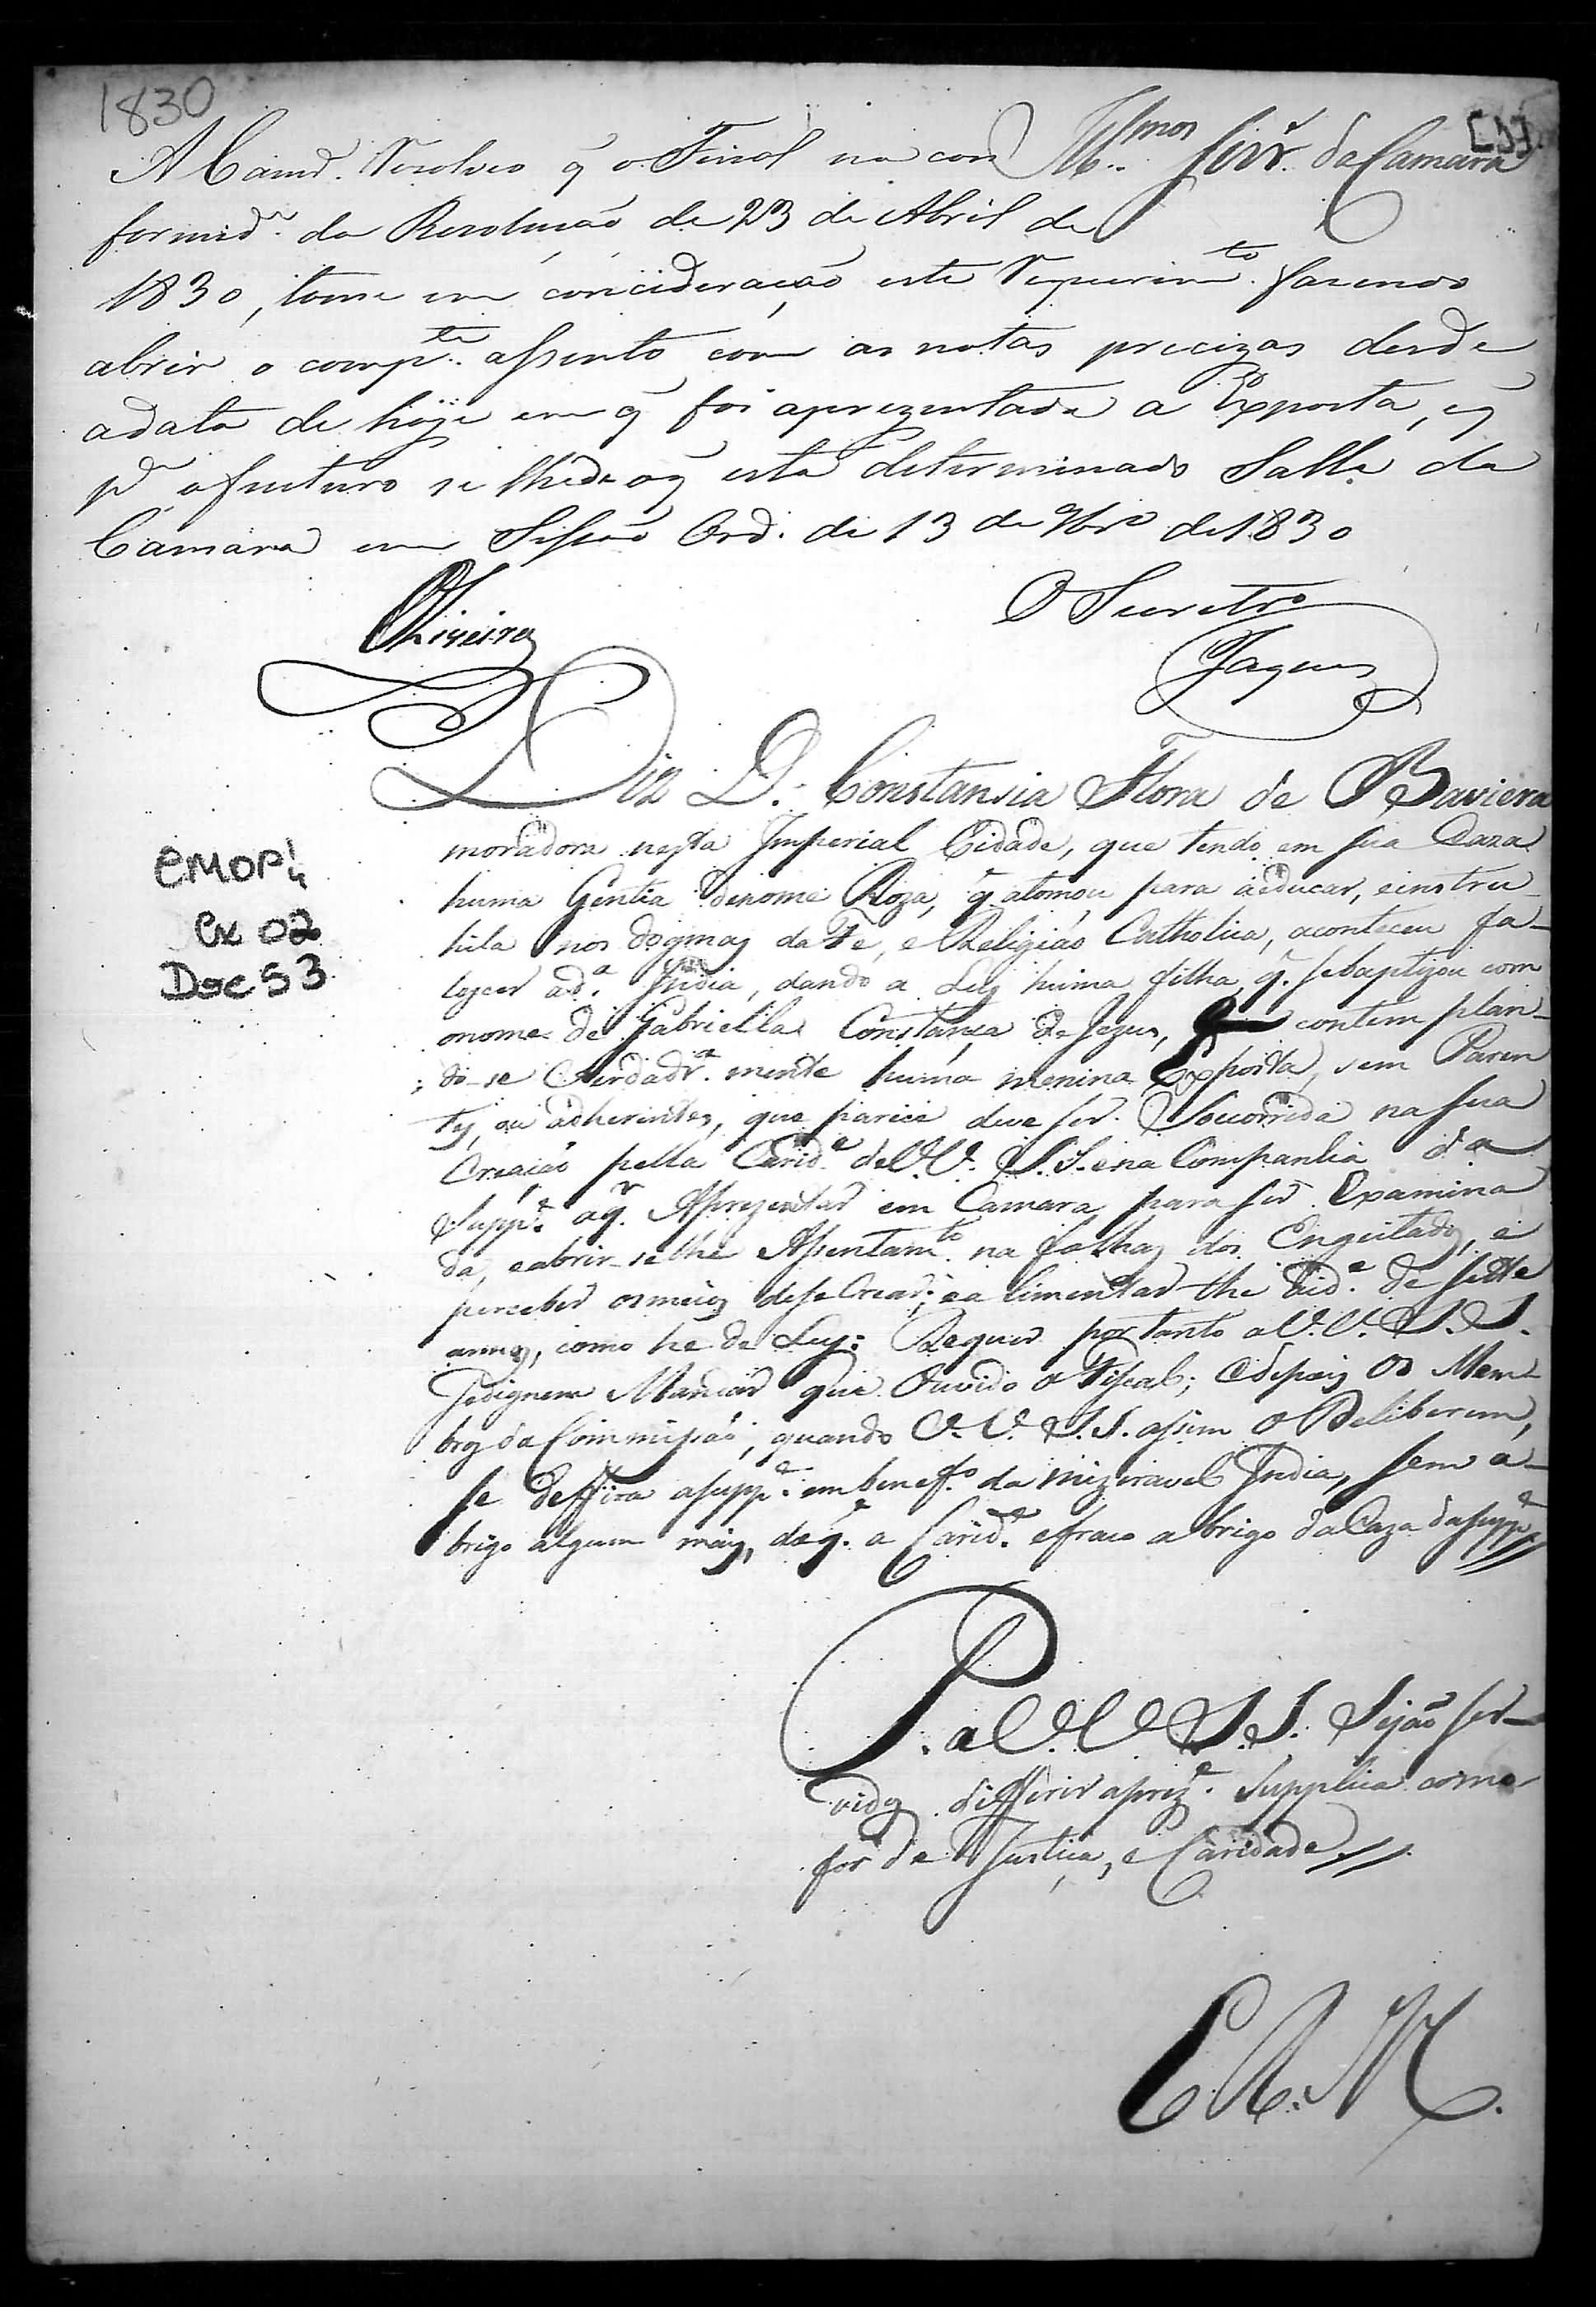 1830
[1]
Ill.mos Snr.es da Camara
A Camr.ª Resolveo q̃ o Fiscal na con
formid.e da Resolução de 23 de Abril de
1830, tome em concideração este Requerim.to fazendo
abrir o comp.te assento com as notas precizas desde
adata de hoje em q̃ foi aprezentada a Exposta, e q̃
p.ª o futuro se lhe dê o q̃ está determinado Salla da
Camara em Sessão Ord. de 13 de 9br.o de 1830
O Secretr.o
Oliveira
Jaques
Diz D. Constansia Flora de Baviera
moradora nesta Imperial Cidade, que tendo em sua Caza
huma Gentia denome Roza, q̃ atomou para aeducar, einstru-
hila nos dogmas da Fé, e Religião Catholica, aconteceu fa-
lezcer ad.ª India, dando a Luz huma filha, q̃. sebaptizou com
onome de Gabriella Constança de Jezus, contem plan-
do-se Verdadr.ª mente huma menina Exposta, sem Paren
tes, ou adherentes, que parice deve ser Socorrida na sua
Creaçaõ pella Carid.e de V.V. S.S. ena Companhia da
Supp.e aq̃. Aprezentar em Camara para ser Examina
da, eabrir-selhe Assentam.to na folha dos Engeitados, e
perceber os meios dese Crear, ea limentar the aid.e de sette
annos, como he de Ley: Requer portanto a V.V. S.S.
Sedignem Mandar que Ouvido o Fiscal; edepois os Mem-
bros da Commissaõ, quando V.V. S.S. assim o Deliberem,
se deffira asupp.e em benef.o da mizeravel India, sem a-
brigo algum mais, do q̃. a Carid.e efraco abrigo da Caza dasupp.e
P. a V.V. S.S. Sejaõ ser-
vidos differir aprez.e Supplica como
for de Justiça, e Caridade
E. R. M.
CMOP
Cx 02
Doc 53